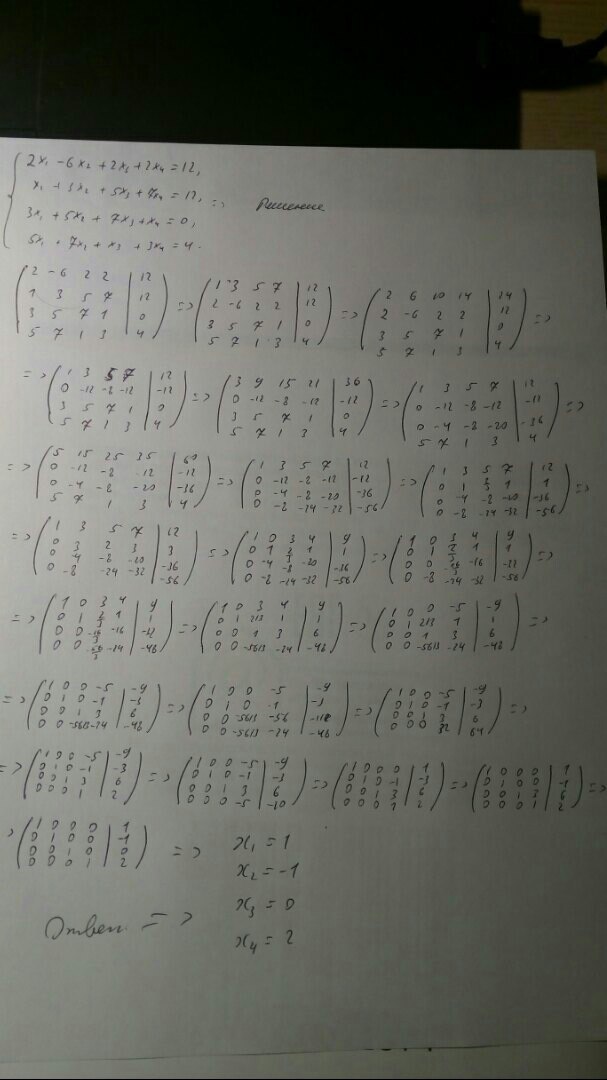 2x₁ - 6x₂ + 2x₃ + 2x₄ = 12,
x₁ + 3x₂ + 5x₃ + 7x₄ = 12, => Решение
3x₁ + 5x₂ + 7x₃ + x₄ = 0,
5x₁ + 7x₂ + x₃ + 3x₄ = 4.
2 -6 2 2 | 12
1 3 5 7 | 12
3 5 7 1 | 0
5 7 1 3 | 4
=>
1 3 5 7 | 12
2 -6 2 2 | 12
3 5 7 1 | 0
5 7 1 3 | 4
=>
2 6 10 14 | 24
2 -6 2 2 | 12
3 5 7 1 | 0
5 7 1 3 | 4
=>
=>
1 3 5 7 | 12
0 -12 -8 -12 | -12
3 5 7 1 | 0
5 7 1 3 | 4
=>
3 9 15 21 | 36
0 -12 -8 -12 | -12
3 5 7 1 | 0
5 7 1 3 | 4
=>
1 3 5 7 | 12
0 -12 -8 -12 | -12
0 -4 -8 -20 | -36
5 7 1 3 | 4
=>
=>
5 15 25 35 | 60
0 -12 -8 12 | -12
0 -4 -8 -20 | -36
5 7 1 3 | 4
=>
1 3 5 7 | 12
0 -12 -8 -12 | -12
0 -4 -8 -20 | -36
0 -8 -24 -32 | -56
=>
1 3 5 7 | 12
0 1 2/3 1 | 1
0 -4 -8 -20 | -36
0 -8 -24 -32 | -56
=>
=>
1 3 5 7 | 12
0 3 2 3 | 3
0 -4 -8 -20 | -36
0 -8 -24 -32 | -56
=>
1 0 3 4 | 9
0 1 2/3 1 | 1
0 -4 -8 -20 | -36
0 -8 -24 -32 | -56
=>
1 0 3 4 | 9
0 1 2/3 1 | 1
0 0 -16/3 -16 | -32
0 -8 -24 -32 | -56
=>
=>
1 0 3 4 | 9
0 1 2/3 1 | 1
0 0 -16/3 -16 | -32
0 0 -56/3 -24 | -48
=>
1 0 3 4 | 9
0 1 2/3 1 | 1
0 0 1 3 | 6
0 0 -56/3 -24 | -48
=>
1 0 0 -5 | -9
0 1 2/3 1 | 1
0 0 1 3 | 6
0 0 -56/3 -24 | -48
=>
=>
1 0 0 -5 | -9
0 1 0 -1 | -3
0 0 1 3 | 6
0 0 -56/3 -24 | -48
=>
1 0 0 -5 | -9
0 1 0 -1 | -3
0 0 -56/3 -56 | -112
0 0 -56/3 -24 | -48
=>
1 0 0 -5 | -9
0 1 0 -1 | -3
0 0 1 3 | 6
0 0 0 32 | 64
=>
=>
1 0 0 -5 | -9
0 1 0 -1 | -3
0 0 1 3 | 6
0 0 0 1 | 2
=>
1 0 0 -5 | -9
0 1 0 -1 | -3
0 0 1 3 | 6
0 0 0 -5 | -10
=>
1 0 0 0 | 1
0 1 0 -1 | -3
0 0 1 3 | 6
0 0 0 1 | 2
=>
1 0 0 0 | 1
0 1 0 0 | -1
0 0 1 3 | 6
0 0 0 1 | 2
=>
=>
1 0 0 0 | 1
0 1 0 0 | -1
0 0 1 0 | 0
0 0 0 1 | 2
=> x₁ = 1
x₂ = -1
Ответ => x₃ = 0
x₄ = 2